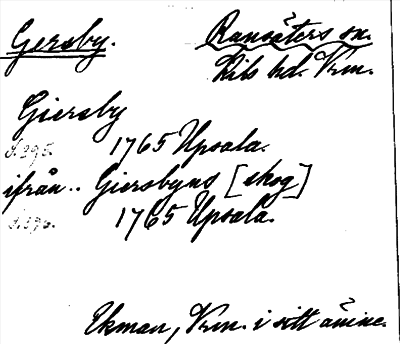 Gersby. Ransäters sn.
Kils hd. Vrm.
Giersby
S. 295. 1765 Upsala.
ifrån.. Giersbyns [skog]
S. 396. 1765 Upsala.
Ekman, Vrm. i sitt ämne.